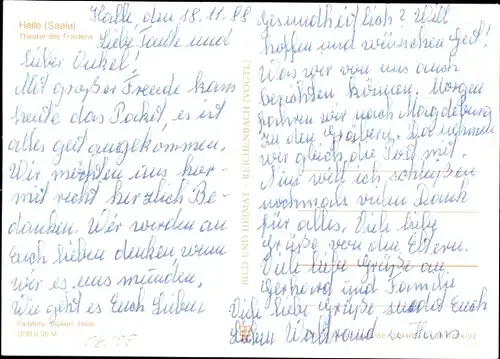 Halle (Saale)
Theater des Friedens
Halle, den 18.11.88
Liebe Tante und
lieber Onkel!
Mit großer Freude kam
heute das Paket, es ist
alles gut angekommen.
Wir möchten uns hier-
mit recht herzlich Be-
danken. Wir werden an
Euch lieben denken wenn
wir es uns munden.
Wie geht es Euch Lieben
Farbfoto: Sickert, Halle
BILD UND HEIMAT · REICHENBACH (VOGTL)
Gesundheitlich? Will
hoffen und wünschen Gut!
Was wir von uns auch
berichten können. Morgen
fahren wir nach Magdeburg
zu den Gräbern. Da nehmen
wir gleich die Post mit.
Nun will ich schließen
nochmals vielen Dank
für alles. Viele liebe
Grüße von den Eltern.
Viele liebe Grüße an
Gerhard und Familie
Viele liebe Grüße sendet Euch
Lieben Waltraud u. Hans